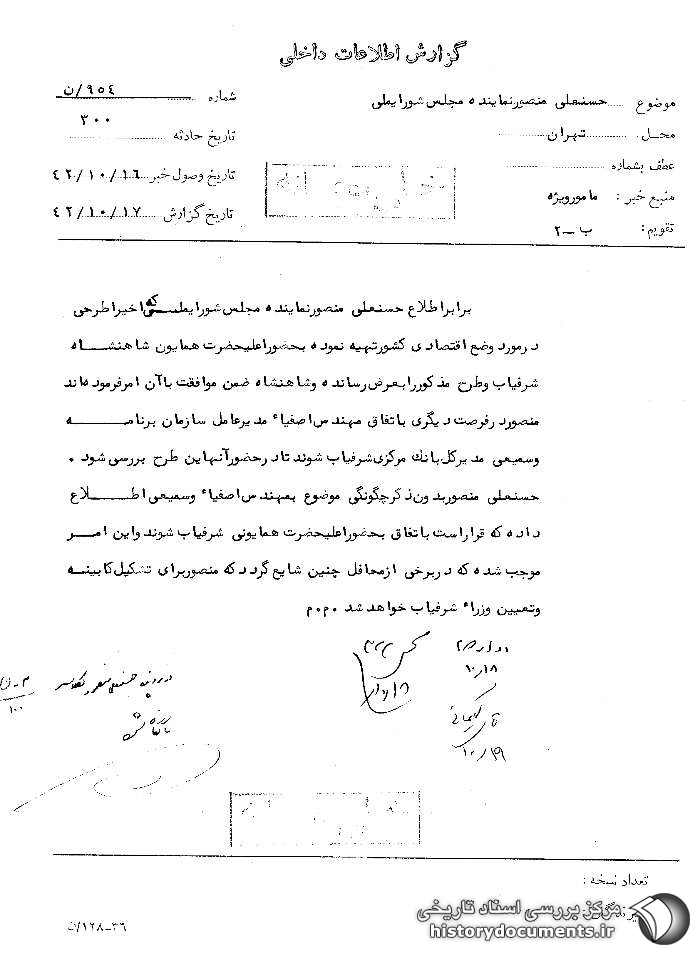 گزارش اطلاعات داخلی
موضوع حسنعلی منصور نماینده مجلس شورایملی
شماره ۹۵۴/ن
۳۰۰
محل تهران
تاریخ حادثه
عطف بشماره
تاریخ وصول خبر ۴۲/۱۰/۱۶
منبع خبر : مامور ویژه
تاریخ گزارش ۴۲/۱۰/۱۷
تقویم : ب ـ ۲
برابر اطلاع حسنعلی منصور نماینده مجلس شورایملی که اخیرا طرحی
در مورد وضع اقتصادی کشور تهیه نموده بحضور اعلیحضرت همایون شاهنشاه
شرفیاب و طرح مذکور را بعرض رسانده و شاهنشاه ضمن موافقت با آن امر فرموده‌اند
منصور در فرصت دیگری باتفاق مهندس اصفیاء مدیر عامل سازمان برنامه
وسمیعی مدیر کل بانک مرکزی شرفیاب شوند تا در حضور آنها این طرح بررسی شود .
حسنعلی منصور بدون ذکر چگونگی موضوع بمهندس اصفیاء وسمیعی اطلاع
داده که قرار است باتفاق بحضور اعلیحضرت همایونی شرفیاب شوند و این امر
موجب شده که در برخی از محافل چنین شایع گردد که منصور برای تشکیل کابینه
و تعیین وزراء شرفیاب خواهد شد .م.م
۱۰/۱۸
تعداد نسخه :
۳۶ـ۱۲۸/ن
مرکز بررسی اسناد تاریخی
historydocuments.ir